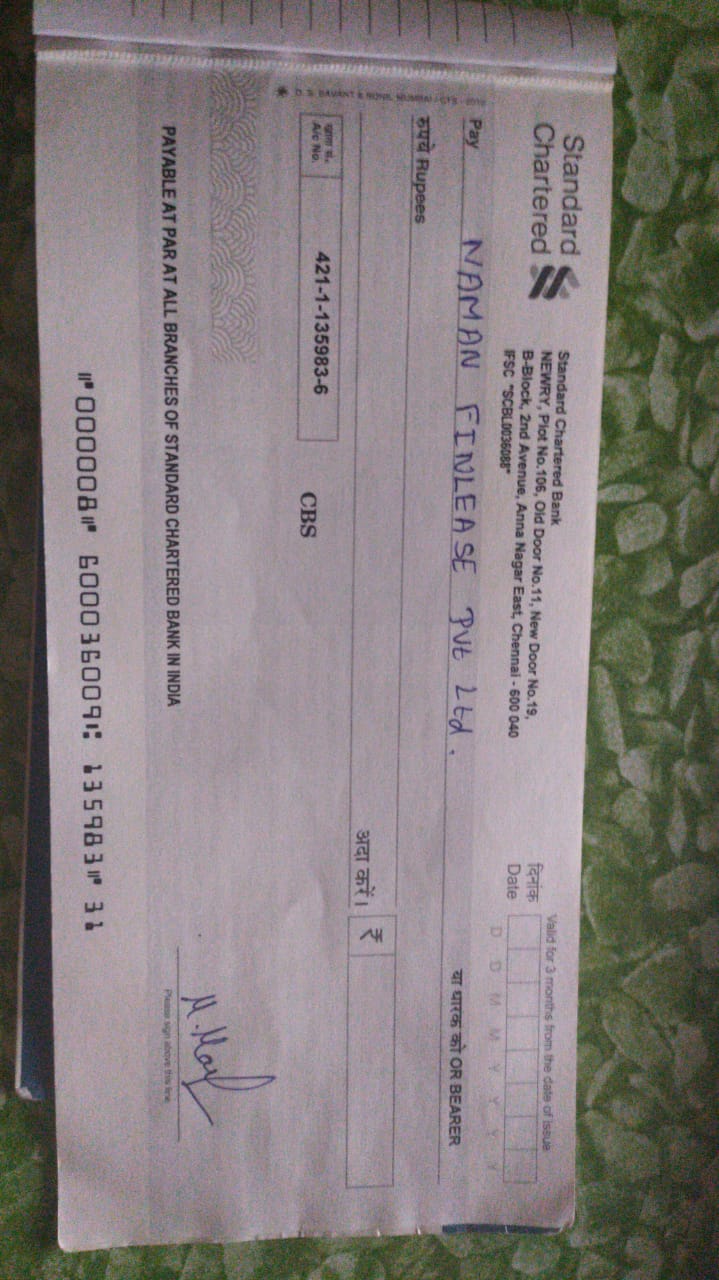 Standard
Chartered
Standard Chartered Bank
NEWRY, Plot No.106, Old Door No.11, New Door No.19,
B-Block, 2nd Avenue, Anna Nagar East, Chennai - 600 040
IFSC "SCBL0036088"
Valid for 3 months from the date of issue
दिनांक
Date
D D M M Y Y Y Y
Pay NAMAN FINLEASE Pvt Ltd.
या धारक को OR BEARER
रुपये Rupees
अदा करें। ₹
खाता सं.
A/c No.
421-1-135983-6
CBS
PAYABLE AT PAR AT ALL BRANCHES OF STANDARD CHARTERED BANK IN INDIA
Please sign above this line
⑈000008⑈ 600036009⑆ 135983⑈ 31